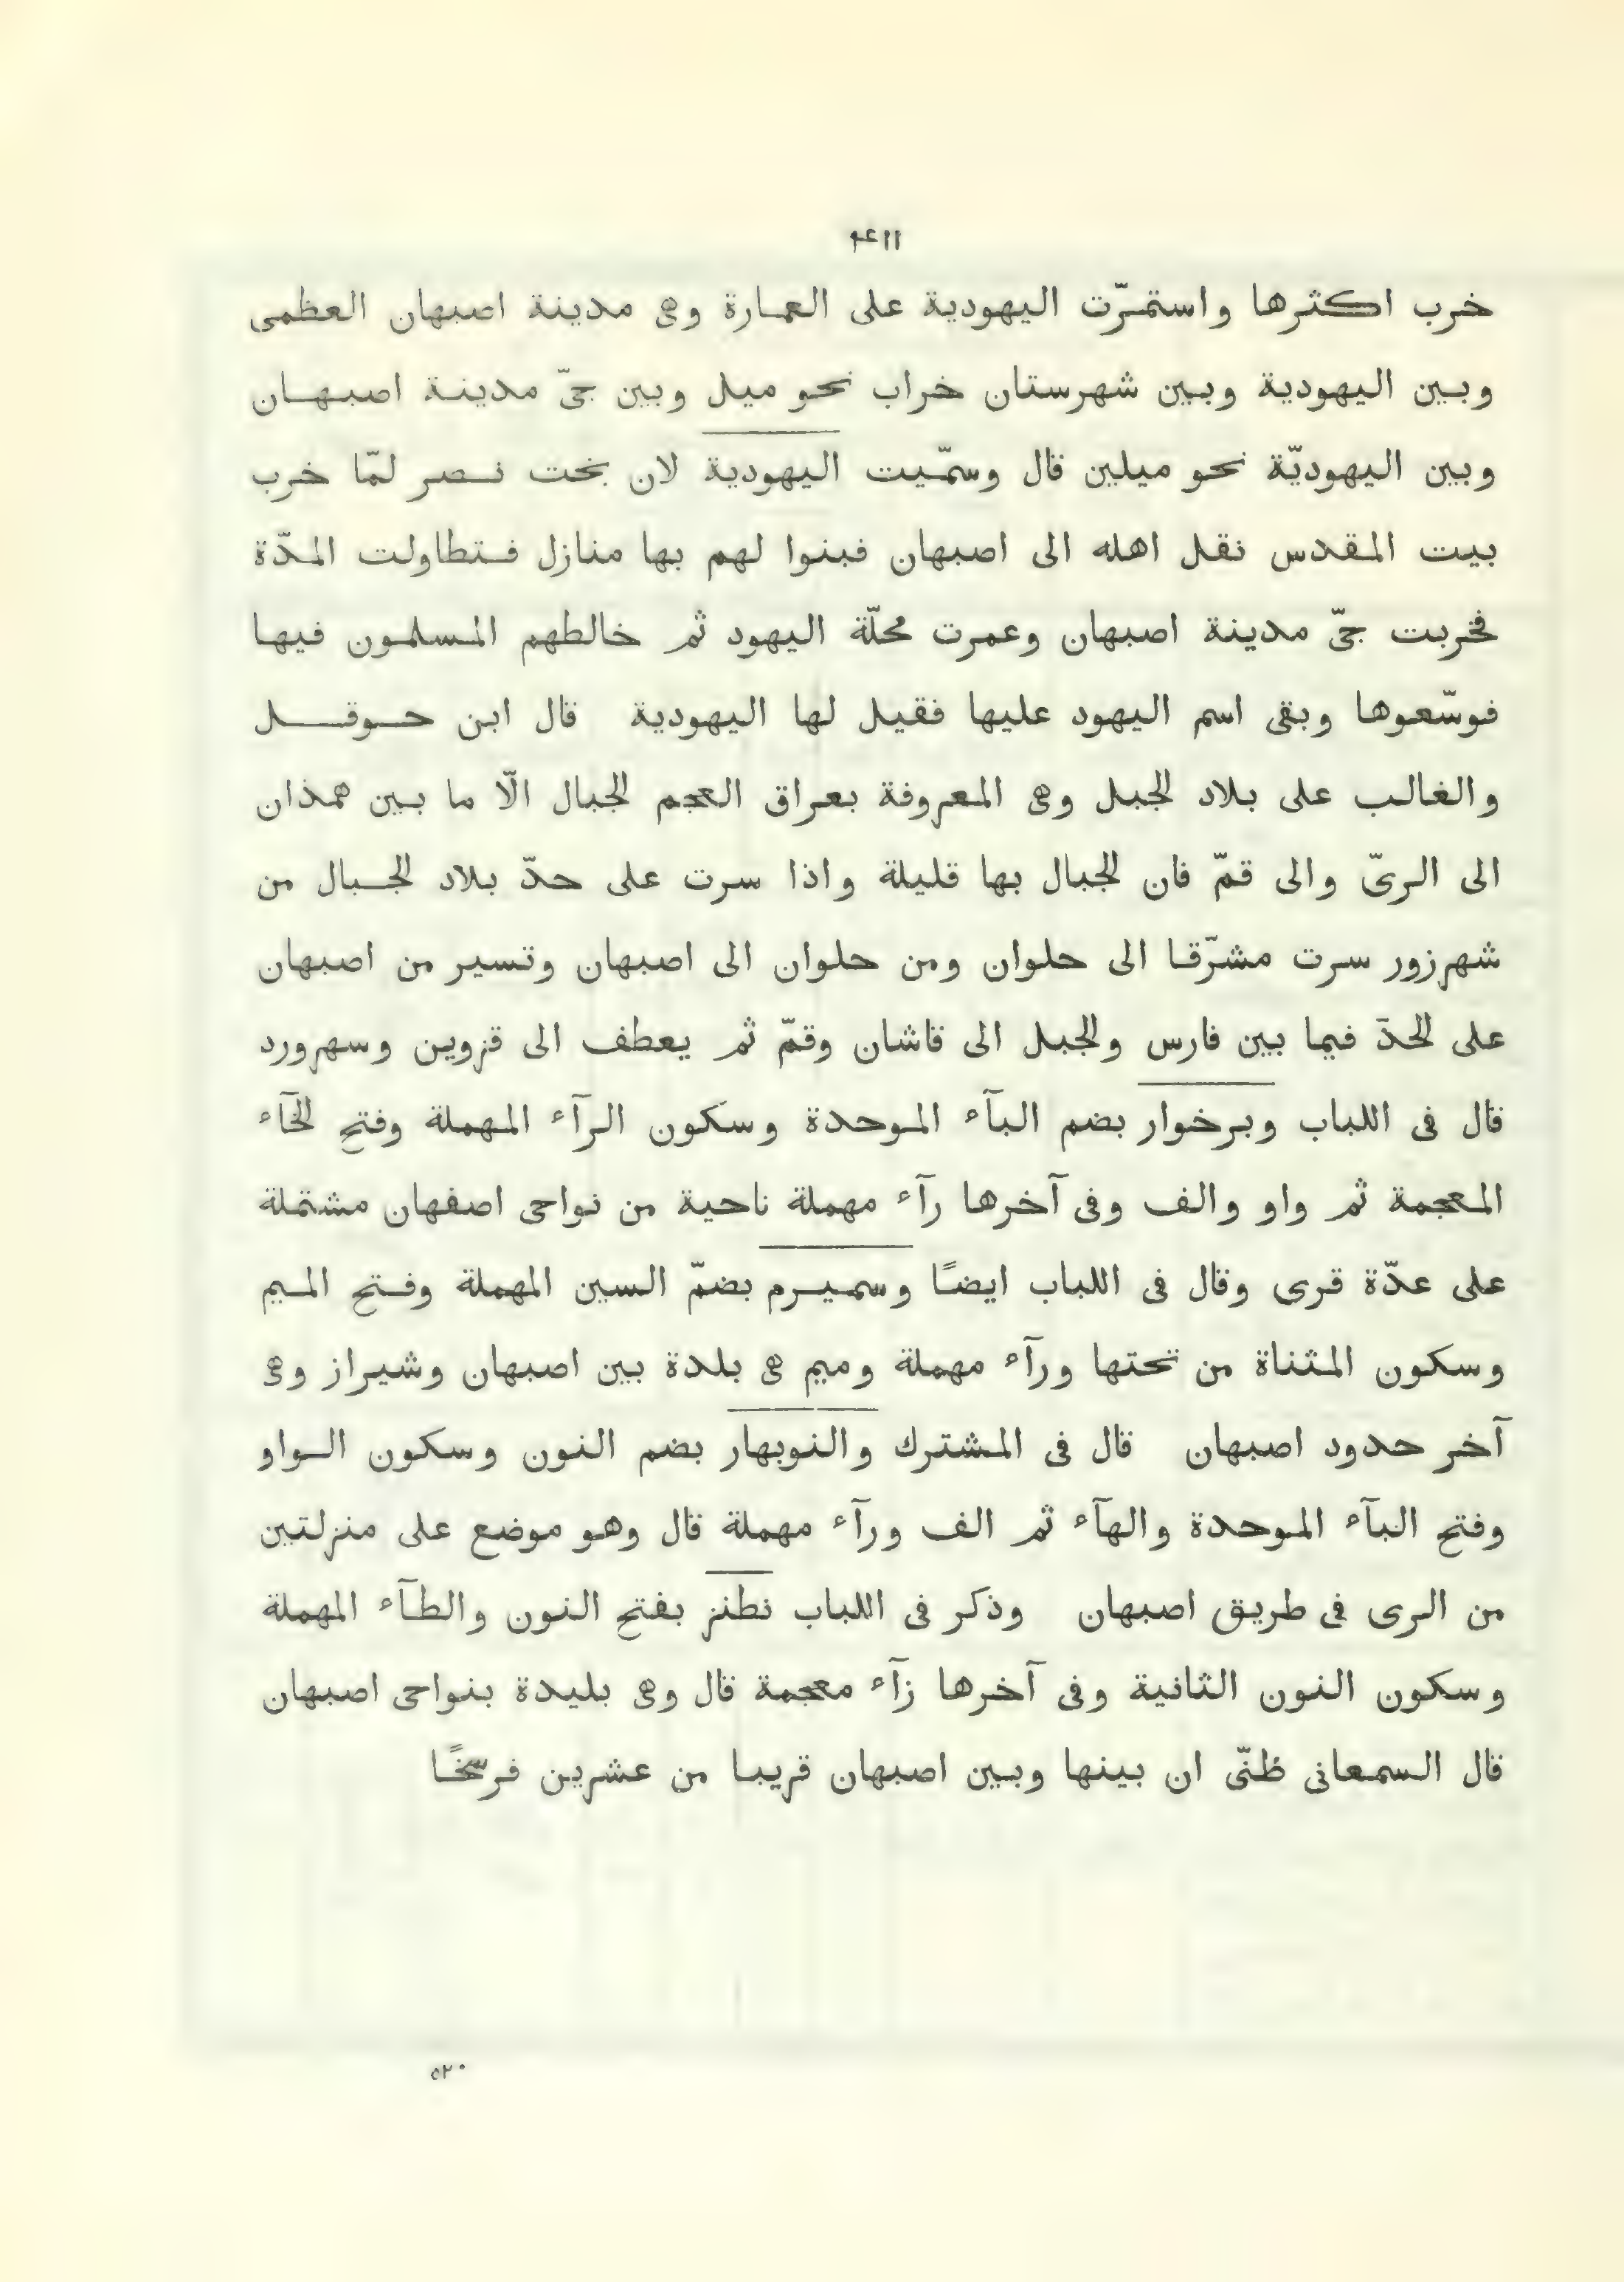 ۴۱۱
خرب اكثرها واستمرّت اليهودية على العمارة وهى مدينة اصبهان العظمى
وبين اليهودية وبين شهرستان خراب نحو ميل وبين جىّ مدينة اصبهان
وبين اليهوديّة نحو ميلين قال وسمّيت اليهودية لان بخت نصر لمّا خرب
بيت المقدس نقل اهله الى اصبهان فبنوا لهم بها منازل فتطاولت المدّة
فخربت جىّ مدينة اصبهان وعمرت محلّة اليهود ثم خالطهم المسلمون فيها
فوسّعوها وبقى اسم اليهود عليها فقيل لها اليهودية قال ابن حوقل
والغالب على بلاد الجبل وهى المعروفة بعراق العجم الجبال الّا ما بين همذان
الى الرىّ والى قمّ فان الجبال بها قليلة واذا سرت على حدّ بلاد الجبال من
شهرزور سرت مشرّقا الى حلوان ومن حلوان الى اصبهان وتسير من اصبهان
على الحدّ فيما بين فارس والجبل الى قاشان وقمّ ثم يعطف الى قزوين وسهرورد
قال فى اللباب وبرخوار بضم البآء الموحدة وسكون الرآء المهملة وفتح الخآء
المعجمة ثم واو والف وفى آخرها رآء مهملة ناحية من نواحى اصفهان مشتملة
على عدّة قرى وقال فى اللباب ايضًا وسميرم بضمّ السين المهملة وفتح الميم
وسكون المثناة من تحتها ورآء مهملة وميم هى بلدة بين اصبهان وشيراز وهى
آخر حدود اصبهان قال فى المشترك والنوبهار بضم النون وسكون الواو
وفتح البآء الموحدة والهآء ثم الف ورآء مهملة قال وهو موضع على منزلتين
من الرى فى طريق اصبهان وذكر فى اللباب نطنز بفتح النون والطآء المهملة
وسكون النون الثانية وفى آخرها زآء معجمة قال وهى بليدة بنواحى اصبهان
قال السمعانى ظنّى ان بينها وبين اصبهان قريبا من عشرين فرسخًا
٥٢٠